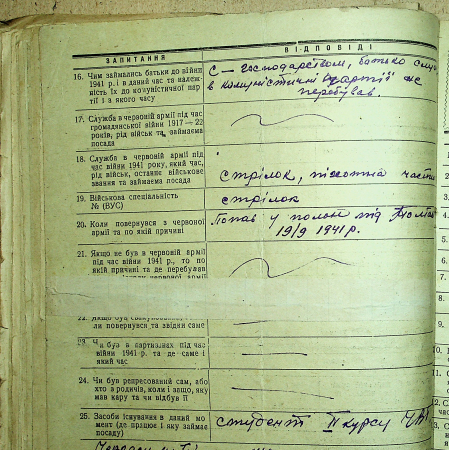 ЗАПИТАННЯ
ВІДПОВІДІ
16. Чим займались батьки до війни
1941 р. і в даний час та належ-
ність їх до комуністичної пар-
тії і з якого часу
С — Господарством, батько
в комуністичній партії не
перебував.
17. Служба в червоній армії під час
громадянської війни 1917—22
років, рід військ та займаєма
посада
18. Служба в червоній армії під
час війни 1941 року, який час,
рід військ, останнє військове
звання та займаєма посада
стрілок, піхотна части
19. Військова спеціальність
№ (ВУС)
стрілок
20. Коли повернувся з червоної
армії та по якій причині
Попав у полон під
19/9 1941 р.
21. Якщо не був в червоній армії
під час війни 1941 р., то по
якій причині та де перебував
22.
ли повернувся та звідки саме
23. Чи був в партизанах під час
війни 1941 р. та де саме і
який час
24. Чи був репресований сам, або
хто з родичів, коли і защо, яку
мав кару та чи відбув її
25. Засоби існування в даний мо-
мент (де працює і яку займає
посаду)
студент II курсу